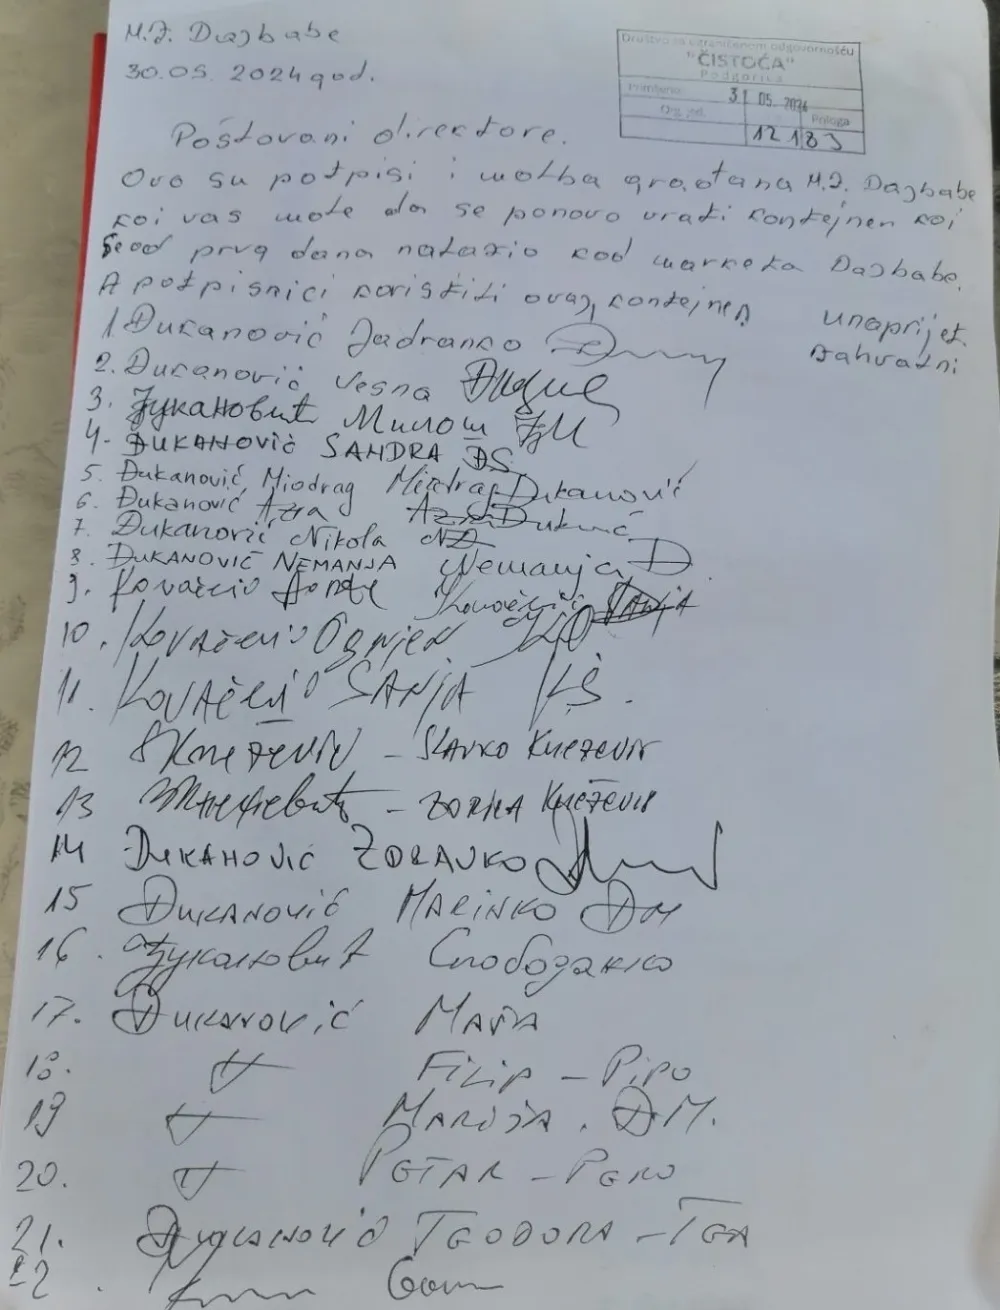 M.Z. Dajbabe
30.05. 2024 god.
Društvo sa ograničenom odgovornošću
"ČISTOĆA"
Podgorica
Primljeno 31 05. 2024
Org. jed. Priloga
12183
Poštovani direktore.
Ovo su potpisi i molba građana M.Z. Dajbabe
koi vas mole da se ponovo vrati kontejner koi
se od prvg dana nalazio kod marketa Dajbabe.
A potpisnici koristili ovaj kontejner
unaprijet
zahvalni
1. Đukanović Jadranko
2. Đukanović Vesna
3. Ђукановић Милош ЂМ
4. ĐUKANOVIĆ SANDRA ĐS
5. Đukanović Miodrag Miodrag Đukanović
6. Đukanović Azra Azra
7. Đukanović Nikola NĐ
8. ĐUKANOVIĆ NEMANJA Nemanja Đ
9. Kovačević
10. Kovačević Ognjen KO
11. KOVAČEVIĆ SANJA KS.
12 S Knežević - SLAVKO KNEŽEVIĆ
13 - ZORKA KNEŽEVIĆ
14 ĐUKANOVIĆ ZDRAVKO
15 ĐUKANOVIĆ MARINKO ĐM
16. Ђукановић Слободанко
17. ĐUKANOVIĆ MAŠA
18. FILIP - PIPO
19 MARIJA. Đ.M.
20. PETAR - PERO
21. ĐUKANOVIĆ TEODORA - TEA
22.